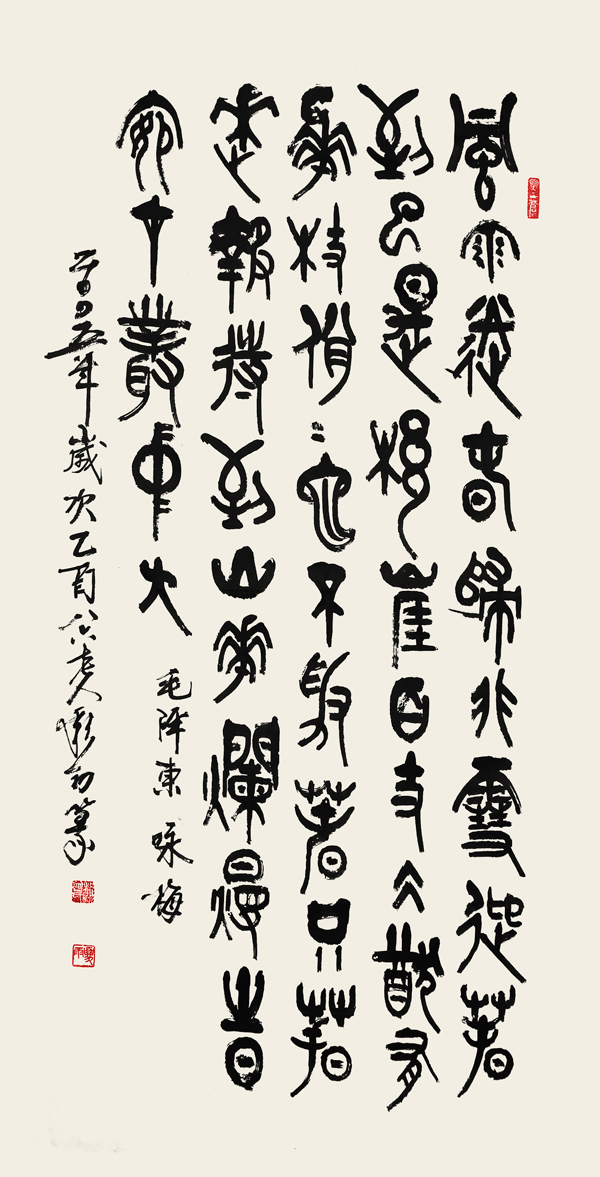 風雨送春歸非雪迎春
到已是懸崖百丈冰猷有
華枝俏〻也不爭春只春
來報待到山華爛熳時
在叢中笑
毛泽東 咏梅
二〇〇五年歲次乙酉八六老人篆